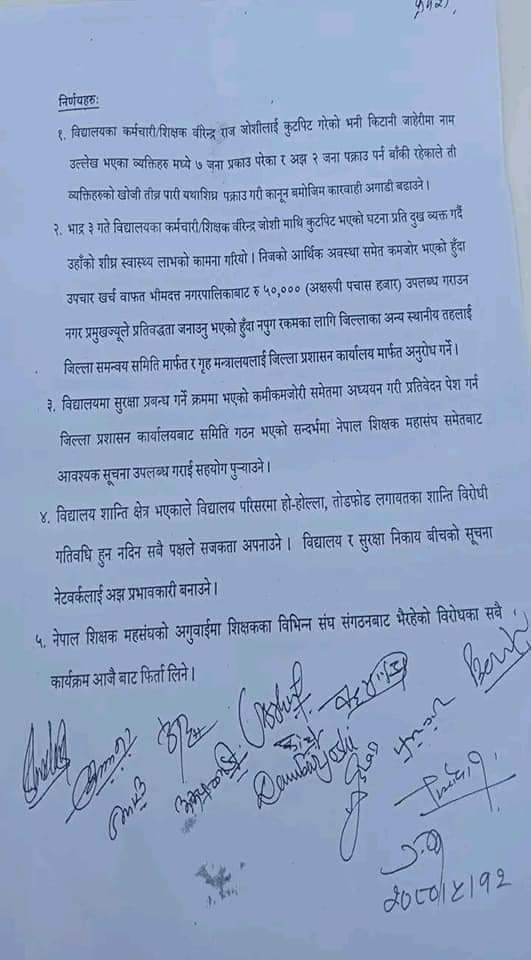 निर्णयहरुः
१. विद्यालयका कर्मचारी/शिक्षक वीरेन्द्र राज जोशीलाई कुटपिट गरेको भनी किटानी जाहेरीमा नाम
उल्लेख भएका व्यक्तिहरु मध्ये ७ जना प्रकाउ परेका र अझ २ जना पक्राउ पर्न बाँकी रहेकाले ती
व्यक्तिहरुको खोजी तीव्र पारी यथाशिघ्र पक्राउ गरी कानून बमोजिम कारवाही अगाडी बढाउने ।
२. भाद्र ३ गते विद्यालयका कर्मचारी/शिक्षक वीरेन्द्र जोशी माथि कुटपिट भएको घटना प्रति दुख व्यक्त गर्दै
उहाँको शीघ्र स्वास्थ्य लाभको कामना गरियो । निजको आर्थिक अवस्था समेत कमजोर भएको हुँदा
उपचार खर्च वाफत भीमदत्त नगरपालिकाबाट रु ५०,००० (अक्षरुपी पचास हजार) उपलब्ध गराउन
नगर प्रमुखज्यूले प्रतिवद्धता जनाउनु भएको हुँदा नपुग रकमका लागि जिल्लाका अन्य स्थानीय तहलाई
जिल्ला समन्वय समिति मार्फत र गृह मन्त्रालयलाई जिल्ला प्रशासन कार्यालय मार्फत अनुरोध गर्ने ।
३. विद्यालयमा सुरक्षा प्रबन्ध गर्ने क्रममा भएको कमीकमजोरी समेतमा अध्ययन गरी प्रतिवेदन पेश गर्न
जिल्ला प्रशासन कार्यालयबाट समिति गठन भएको सन्दर्भमा नेपाल शिक्षक महासंघ समेतबाट
आवश्यक सूचना उपलब्ध गराई सहयोग पुऱ्याउने ।
४. विद्यालय शान्ति क्षेत्र भएकाले विद्यालय परिसरमा हो-होल्ला, तोडफोड लगायतका शान्ति विरोधी
गतिवधि हुन नदिन सबै पक्षले सजकता अपनाउने । विद्यालय र सुरक्षा निकाय बीचको सूचना
नेटवर्कलाई अझ प्रभावकारी बनाउने ।
५. नेपाल शिक्षक महसंघको अगुवाईमा शिक्षकका विभिन्न संघ संगठनबाट भैरहेको विरोधका सबै
कार्यक्रम आजै बाट फिर्ता लिने ।
Joshi
२०८०/५/१२